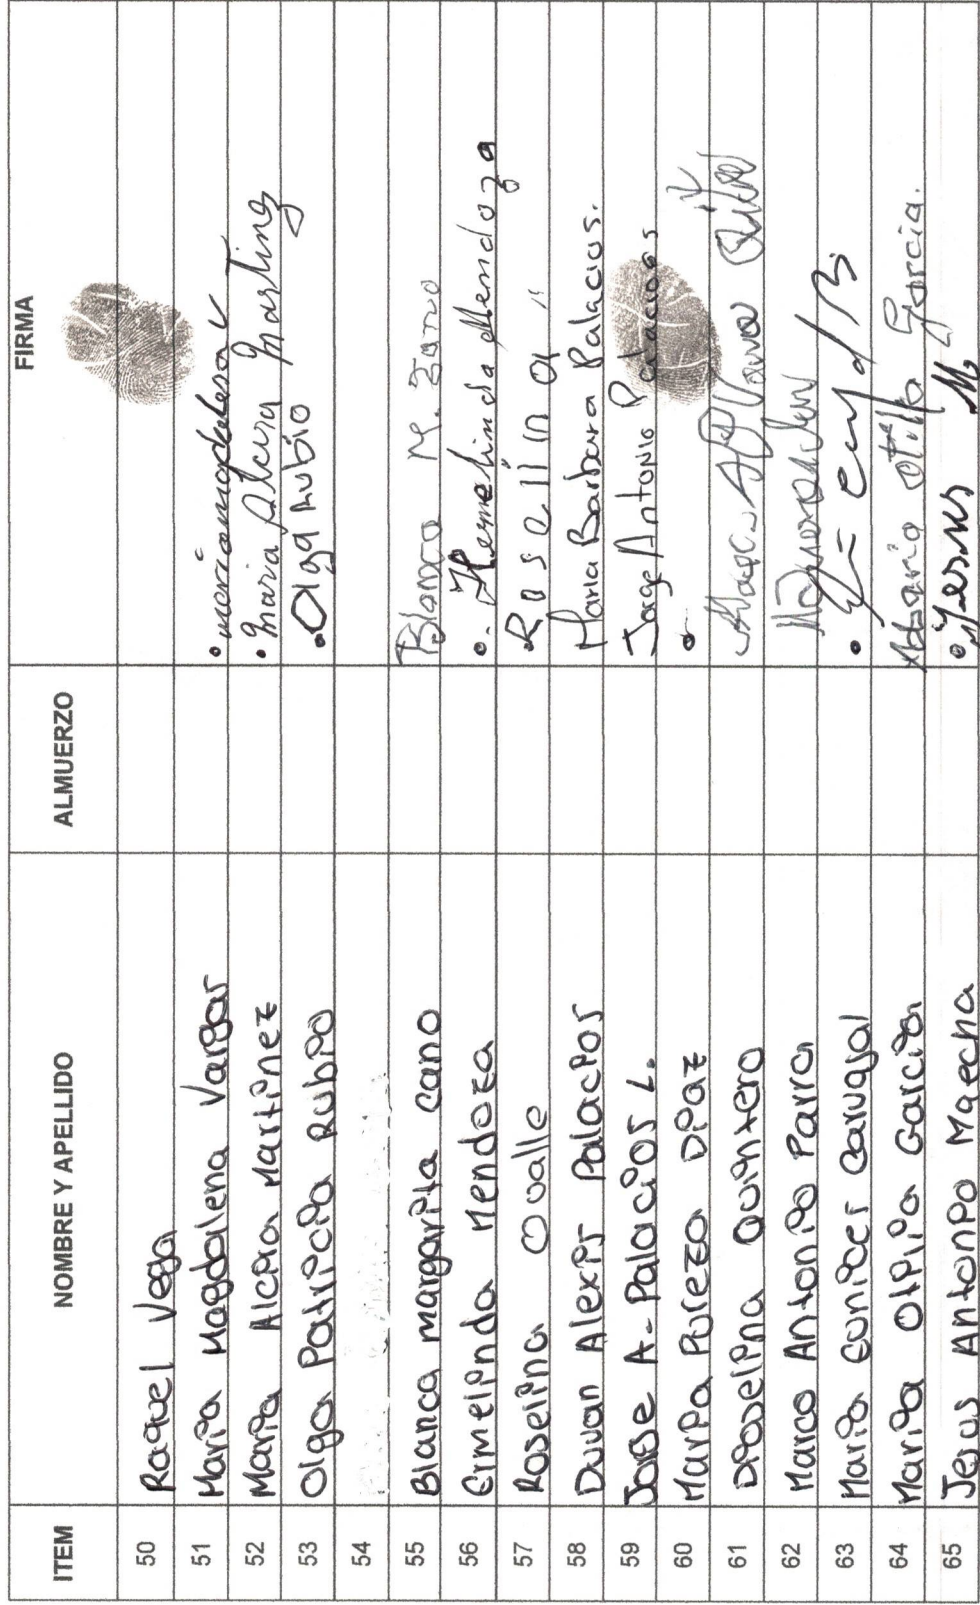 ITEM NOMBRE Y APELLIDO ALMUERZO FIRMA
50 Raquel Vega
51 Maria Magdalena Vargas mariamagdalena v
52 Maria Alcira Martinez maria Alcira Martinez
53 Olga Patricia Rubio Olga Rubio
54
55 Blanca margarita cano Blanca M. Zano
56 Ermelinda Mendoza Hermelinda Mendoza
57 Roselina Ovalle Roselina
58 Duvan Alexis Palacios Maria Barbara Palacios.
59 Jorge A. Palacios L. Jorge Antonio Palacios
60 Maria Pureza Diaz
61 Dioselina Quintero
62 Marco Antonio Parra
63 Maria Eunices Carvajal
64 Maria Otilia Garcia Maria otilia Garcia.
65 Jesus Antonio Maecha Jesus M.